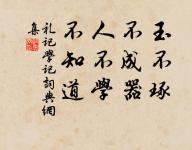 玉不琢
不成器
人不學
不知道
礼记學记詞典網
集